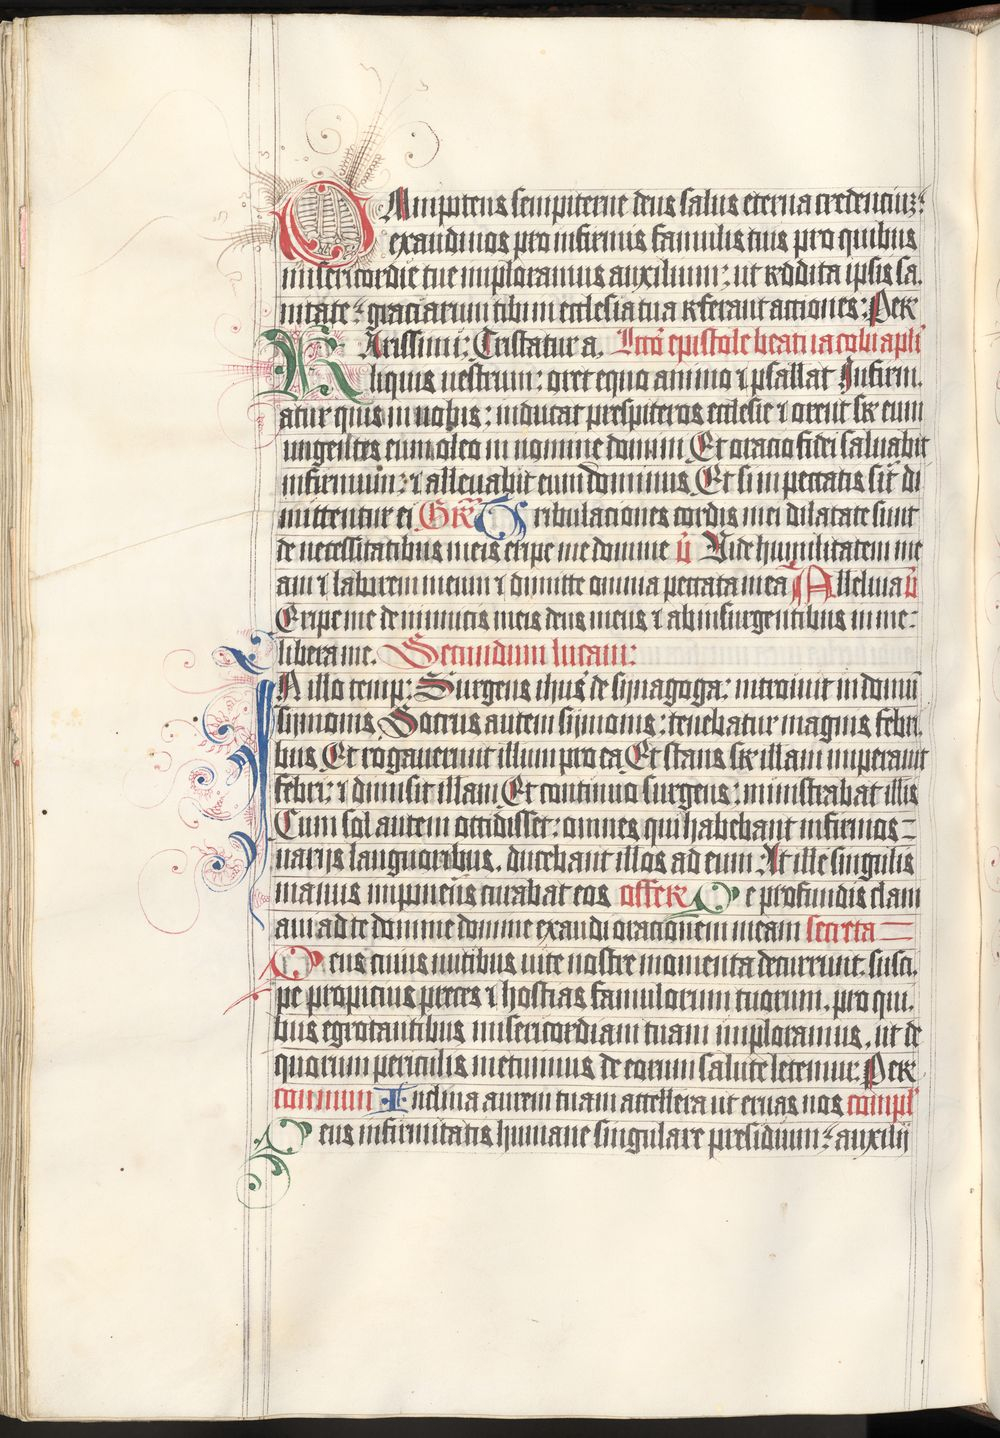 OMnipotens sempiterne deus salus eterna credenciuz:
exaudi nos pro infirmis famulis tuis pro quibus
misericordie tue imploramus auxilium; ut reddita ipsis sa
nitate: graciarum tibi in ecclesia tua referant actiones; Per
KArissimi; Tristatur a. Lccō epistole beati iacobi apli
liquis uestrum: oret equo animo ⁊ psallat Infirm
atur quis in uobis; inducat prespiteros ecclesie ⁊ orent sr eum
ungentes eum oleo in nomine domini Et oratio fidei saluabit
infirmum; ⁊ alleuabit eum dominus Et si in peccatis sit di
mittentur ei Gr̄ Tribulationes cordis mei dilatate sunt
de necessitatibus meis eripe me domine v̄ Vide humilitatem me
am ⁊ laborem meum ⁊ dimitte omnia peccata mea Alleluia v̄
Eripe me de inimicis meis deus meus ⁊ ab insurgentibus in me:
libera me. Secundum lucam:
IN illo temp; Surgens ihus de synagoga: introiuit in domū
symonis Socrus autem symonis; tenebatur magnis febri
bus Et rogauerunt illum pro ea Et stans sr illam imperauit
febri; ⁊ dimisit illam Et continuo surgens; ministrabat illis
Cum sol autem occidisset; omnes qui habebant infirmos
uarijs languoribus. ducebant illos ad eum At ille singulis
manus imponens curabat eos offer De profundis clam
aui ad te domine domine exaudi orationem meam secreta
Deus cuius nutibus uite nostre momenta decurrunt. susci
pe propicius preces ⁊ hostias famulorum tuorum. pro qui
bus egrotantibus misericordiam tuam imploramus. ut de
quorum periculis metuimus de eorum salute letemur. Per
commun Inclina aurem tuam accellera ut eruas nos compl
Deus infirmitatis humane singulare presidium: auxilij